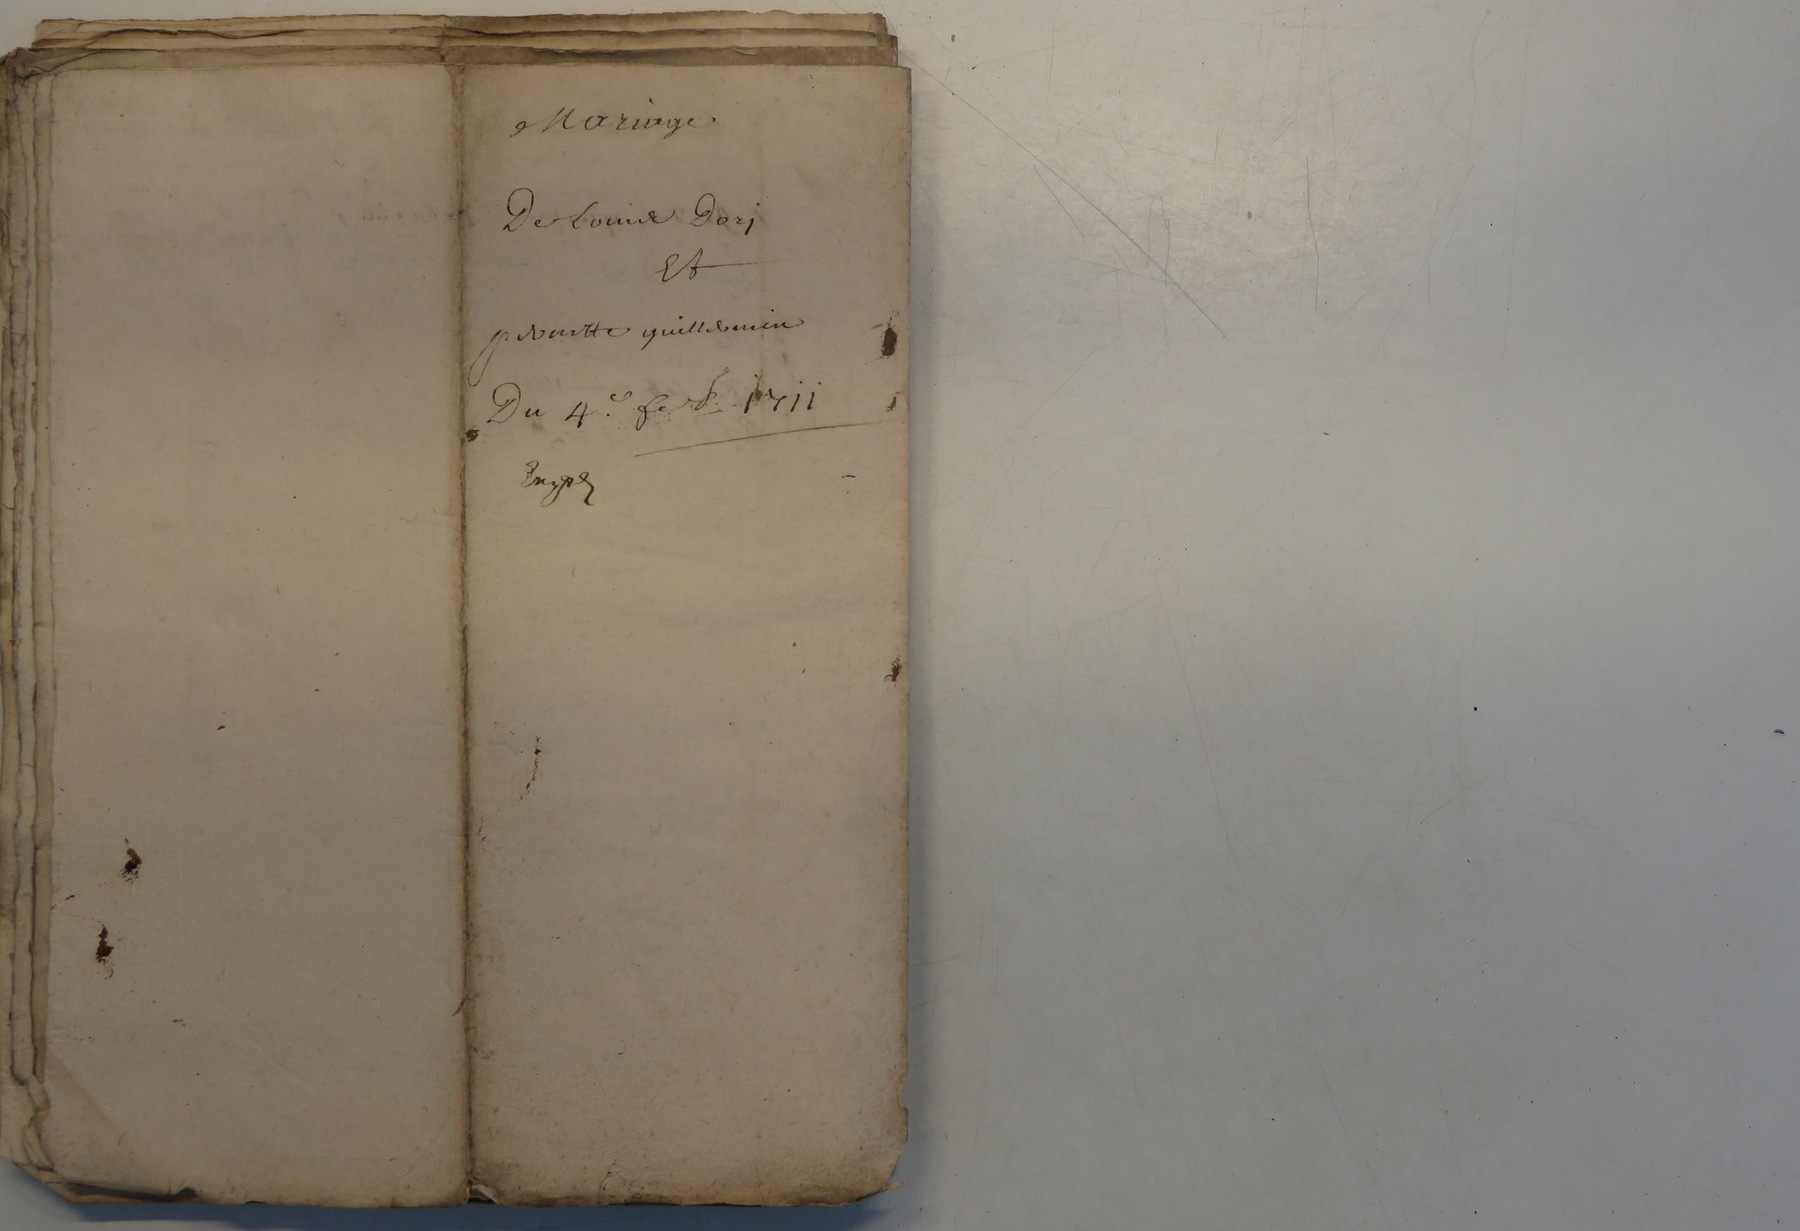 Mariage
De Louis Dorj
Et
pierrette guillemin
Du 4.e feb. 1711